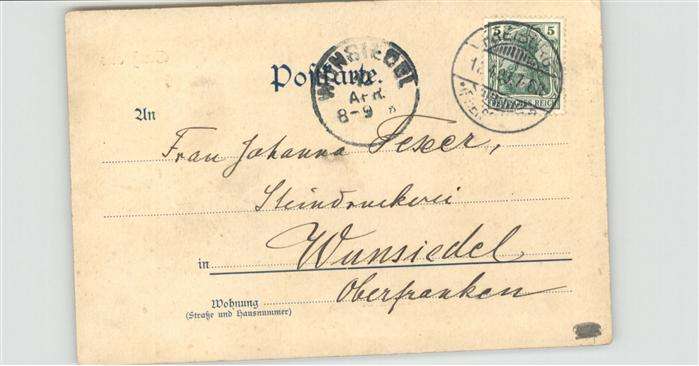 5
DEUTSCHES REICH
FREIBERG
WUNSIEDEL
APR.
8-9
Postkarte.
An
Frau Johanna
Steindruckerei
in Wunsiedel
Oberfranken
Wohnung
(Straße und Hausnummer)